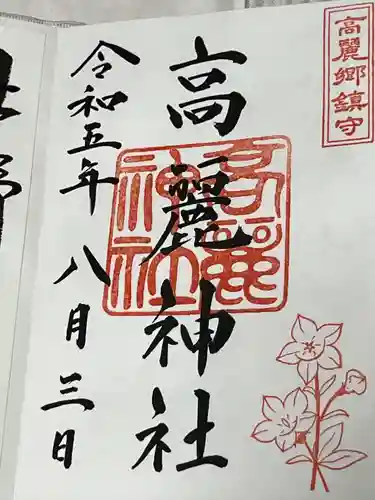 高麗郷鎮守
高麗神社
高麗神社
令和五年八月三日